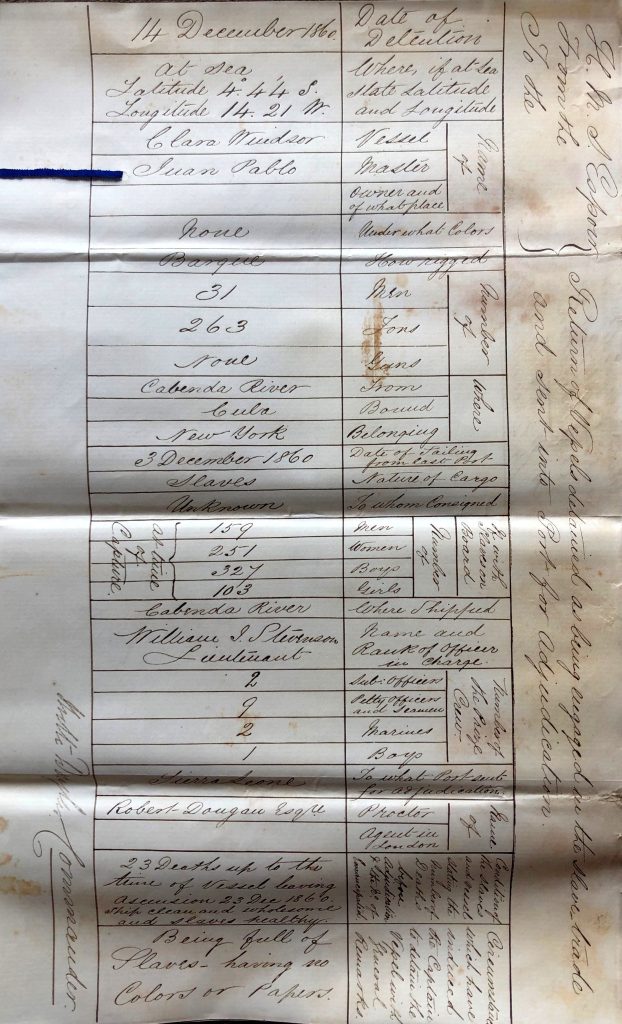 H. M. S Espoir
From the
To the
Return of Vessels detained as being engaged in the Slave trade
and sent into Port for Adjudication.
Date of
Detention
14 December 1860.
Where, if at Sea
state Latitude
and Longitude
At Sea
Latitude 4°.44' S.
Longitude 14.21 W.
Name
of
Vessel
Clara Windsor
Master
Juan Pablo
Owner and
of what place
Under what Colors
None
How rigged
Barque
Number
of
Men
31
Tons
263
Guns
None
Where
From
Cabenda River
Bound
Cuba
Belonging
New York
Date of Sailing
from last Port
3 December 1860
Nature of Cargo
Slaves
To whom Consigned
Unknown
If with
Slaves on
Board
Number
of
Men
159
Women
251
Boys
327
Girls
103
at time
of
Capture.
Where Shipped
Cabenda River
Name and
Rank of Officer
in charge.
William J. Stevenson
Lieutenant
Number of
the Prize
Crew
Sub: Officers
2
Petty Officers
and Seamen
9
Marines
2
Boys
1
To what Port sent
for adjudication
Sierra Leone
Name
of
Proctor
Robert Dougan Esqre
Agent in
London
Condition of
the Slaves
and Vessel
stating the
Number of
Deaths
before
Adjudication
23 Deaths up to the
time of Vessel leaving
Ascension 23 Dec 1860.
Ship clean and wholesome
and slaves healthy.
Circumstances
which have
induced
the Captain
to detain the
Vessel with
General
Remarks.
Being full of
Slaves - having no
Colors or Papers.
Commander.